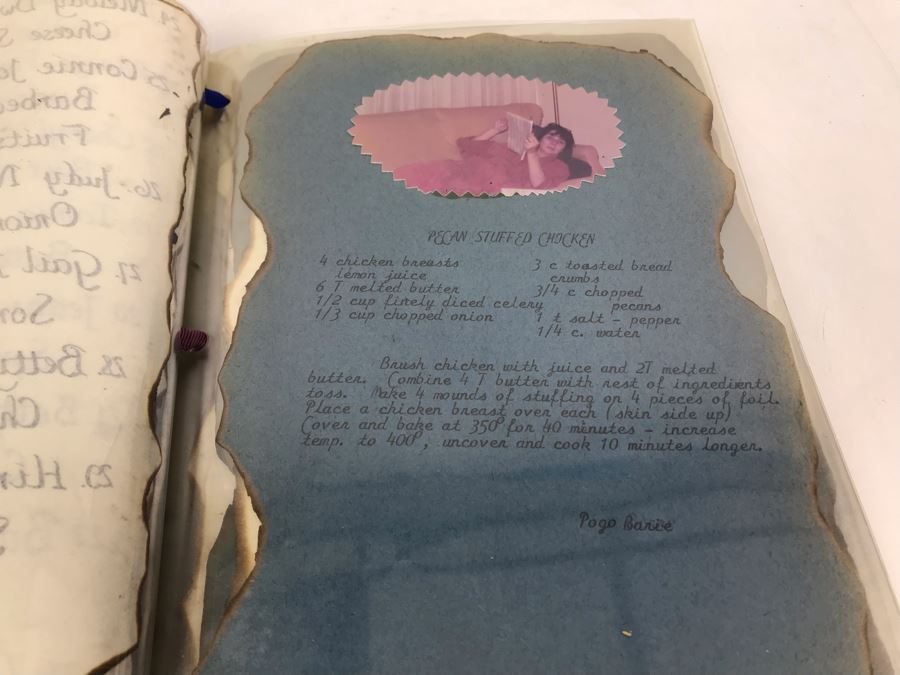 PECAN STUFFED CHICKEN
4 chicken breasts
lemon juice
6 T melted butter
1/2 cup finely diced celery
1/3 cup chopped onion
3 c toasted bread
crumbs
3/4 c chopped
pecans
1 t salt - pepper
1/4 c. water
Brush chicken with juice and 2T melted
butter. Combine 4 T butter with rest of ingredients
toss. Make 4 mounds of stuffing on 4 pieces of foil.
Place a chicken breast over each (skin side up)
Cover and bake at 350° for 40 minutes - increase
temp. to 400°, uncover and cook 10 minutes longer.
Pogo
24 Melody
Cheese
25 Connie
Fruits
26 Judy
27 Gail
28 Betty